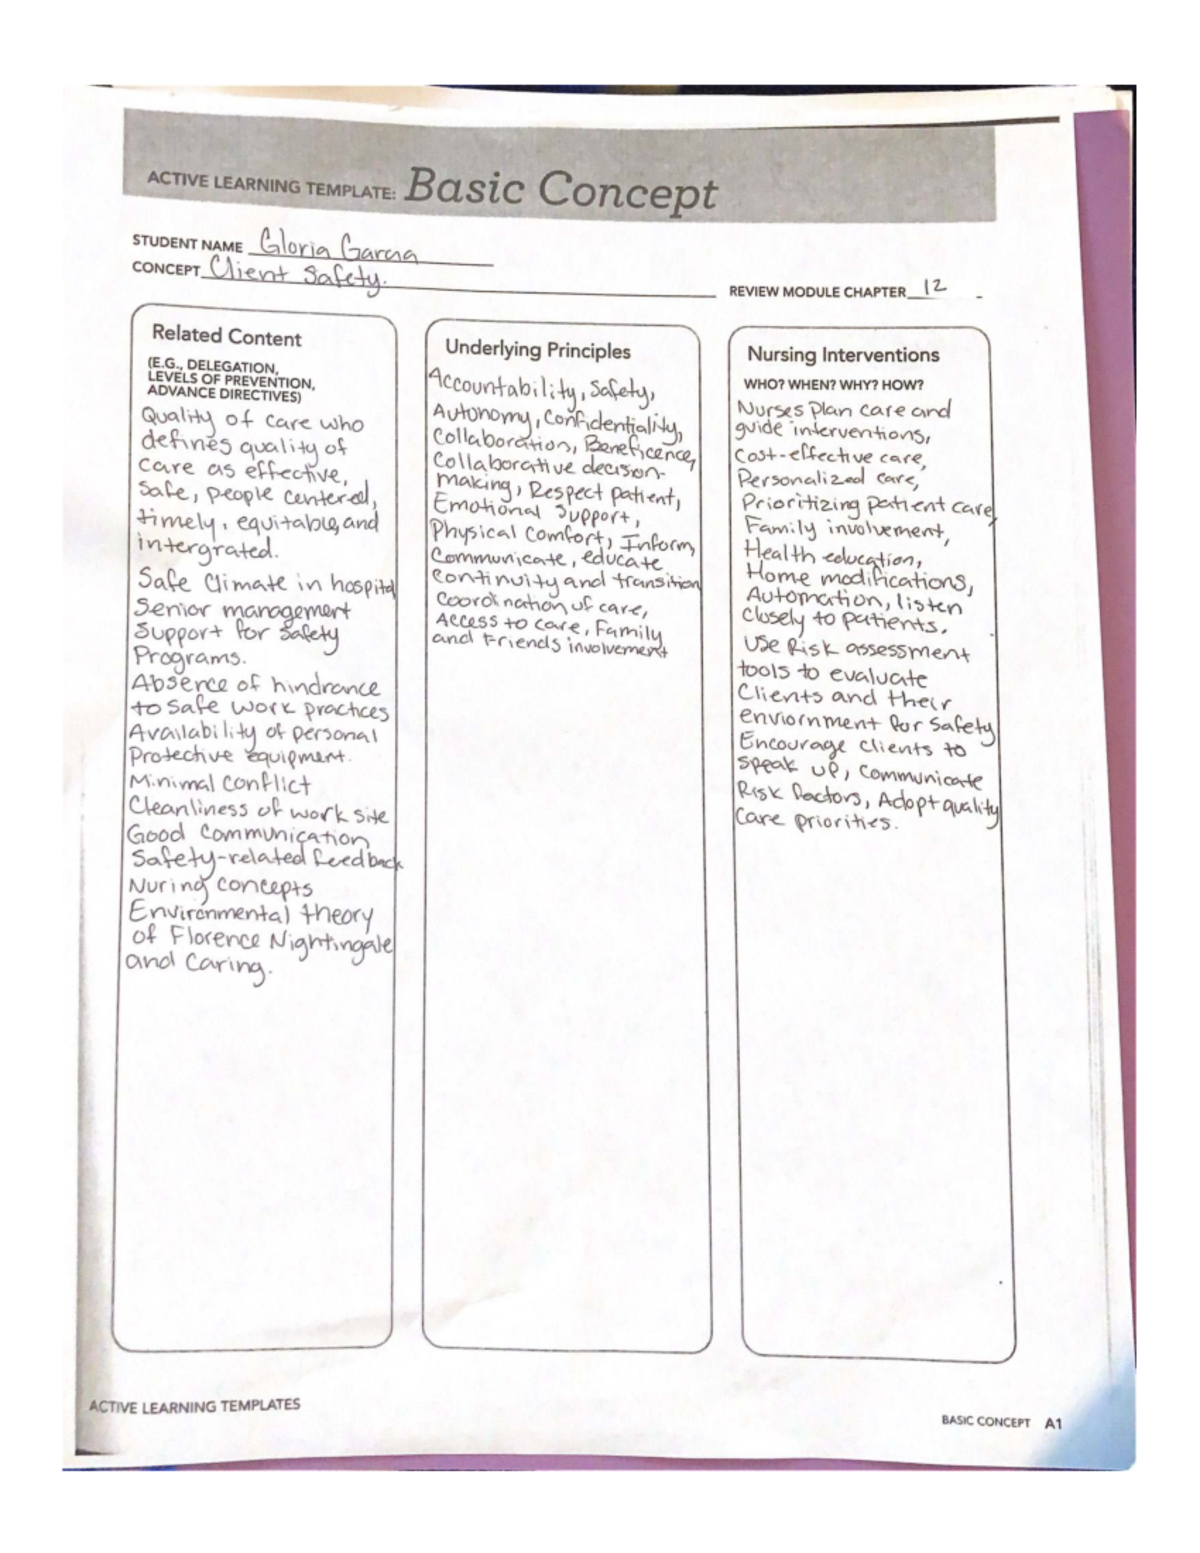 ACTIVE LEARNING TEMPLATE: Basic Concept
STUDENT NAME Gloria Garcia
CONCEPT Client Safety.
REVIEW MODULE CHAPTER 12
Related Content
(E.G., DELEGATION,
LEVELS OF PREVENTION,
ADVANCE DIRECTIVES)
Quality of care who
defines quality of
care as effective,
safe, people centered,
timely, equitable, and
intergrated.
Safe Climate in hospital
Senior management
Support for Safety
Programs.
Absence of hindrance
to safe work practices
Availability of personal
Protective equipment.
Minimal conflict
Cleanliness of work site
Good Communication
Safety-related feedback
Nuring concepts
Environmental theory
of Florence Nightingale
and Caring.
Underlying Principles
Accountability, Safety,
Autonomy, Confidentiality,
Collaboration, Beneficence,
Collaborative decision-
making, Respect patient,
Emotional Support,
Physical Comfort, Inform,
Communicate, educate
Continuity and transition
Coordination of care,
Access to care, Family
and Friends involvement
Nursing Interventions
WHO? WHEN? WHY? HOW?
Nurses Plan care and
guide interventions,
Cost-effective care,
Personalized care,
Prioritizing patient care,
Family involvement,
Health education,
Home modifications,
Automation, listen
Closely to patients.
Use Risk assessment
tools to evaluate
Clients and their
enviornment for safety
Encourage clients to
speak up, Communicate
Risk factors, Adopt quality
Care priorities.
ACTIVE LEARNING TEMPLATES
BASIC CONCEPT A1